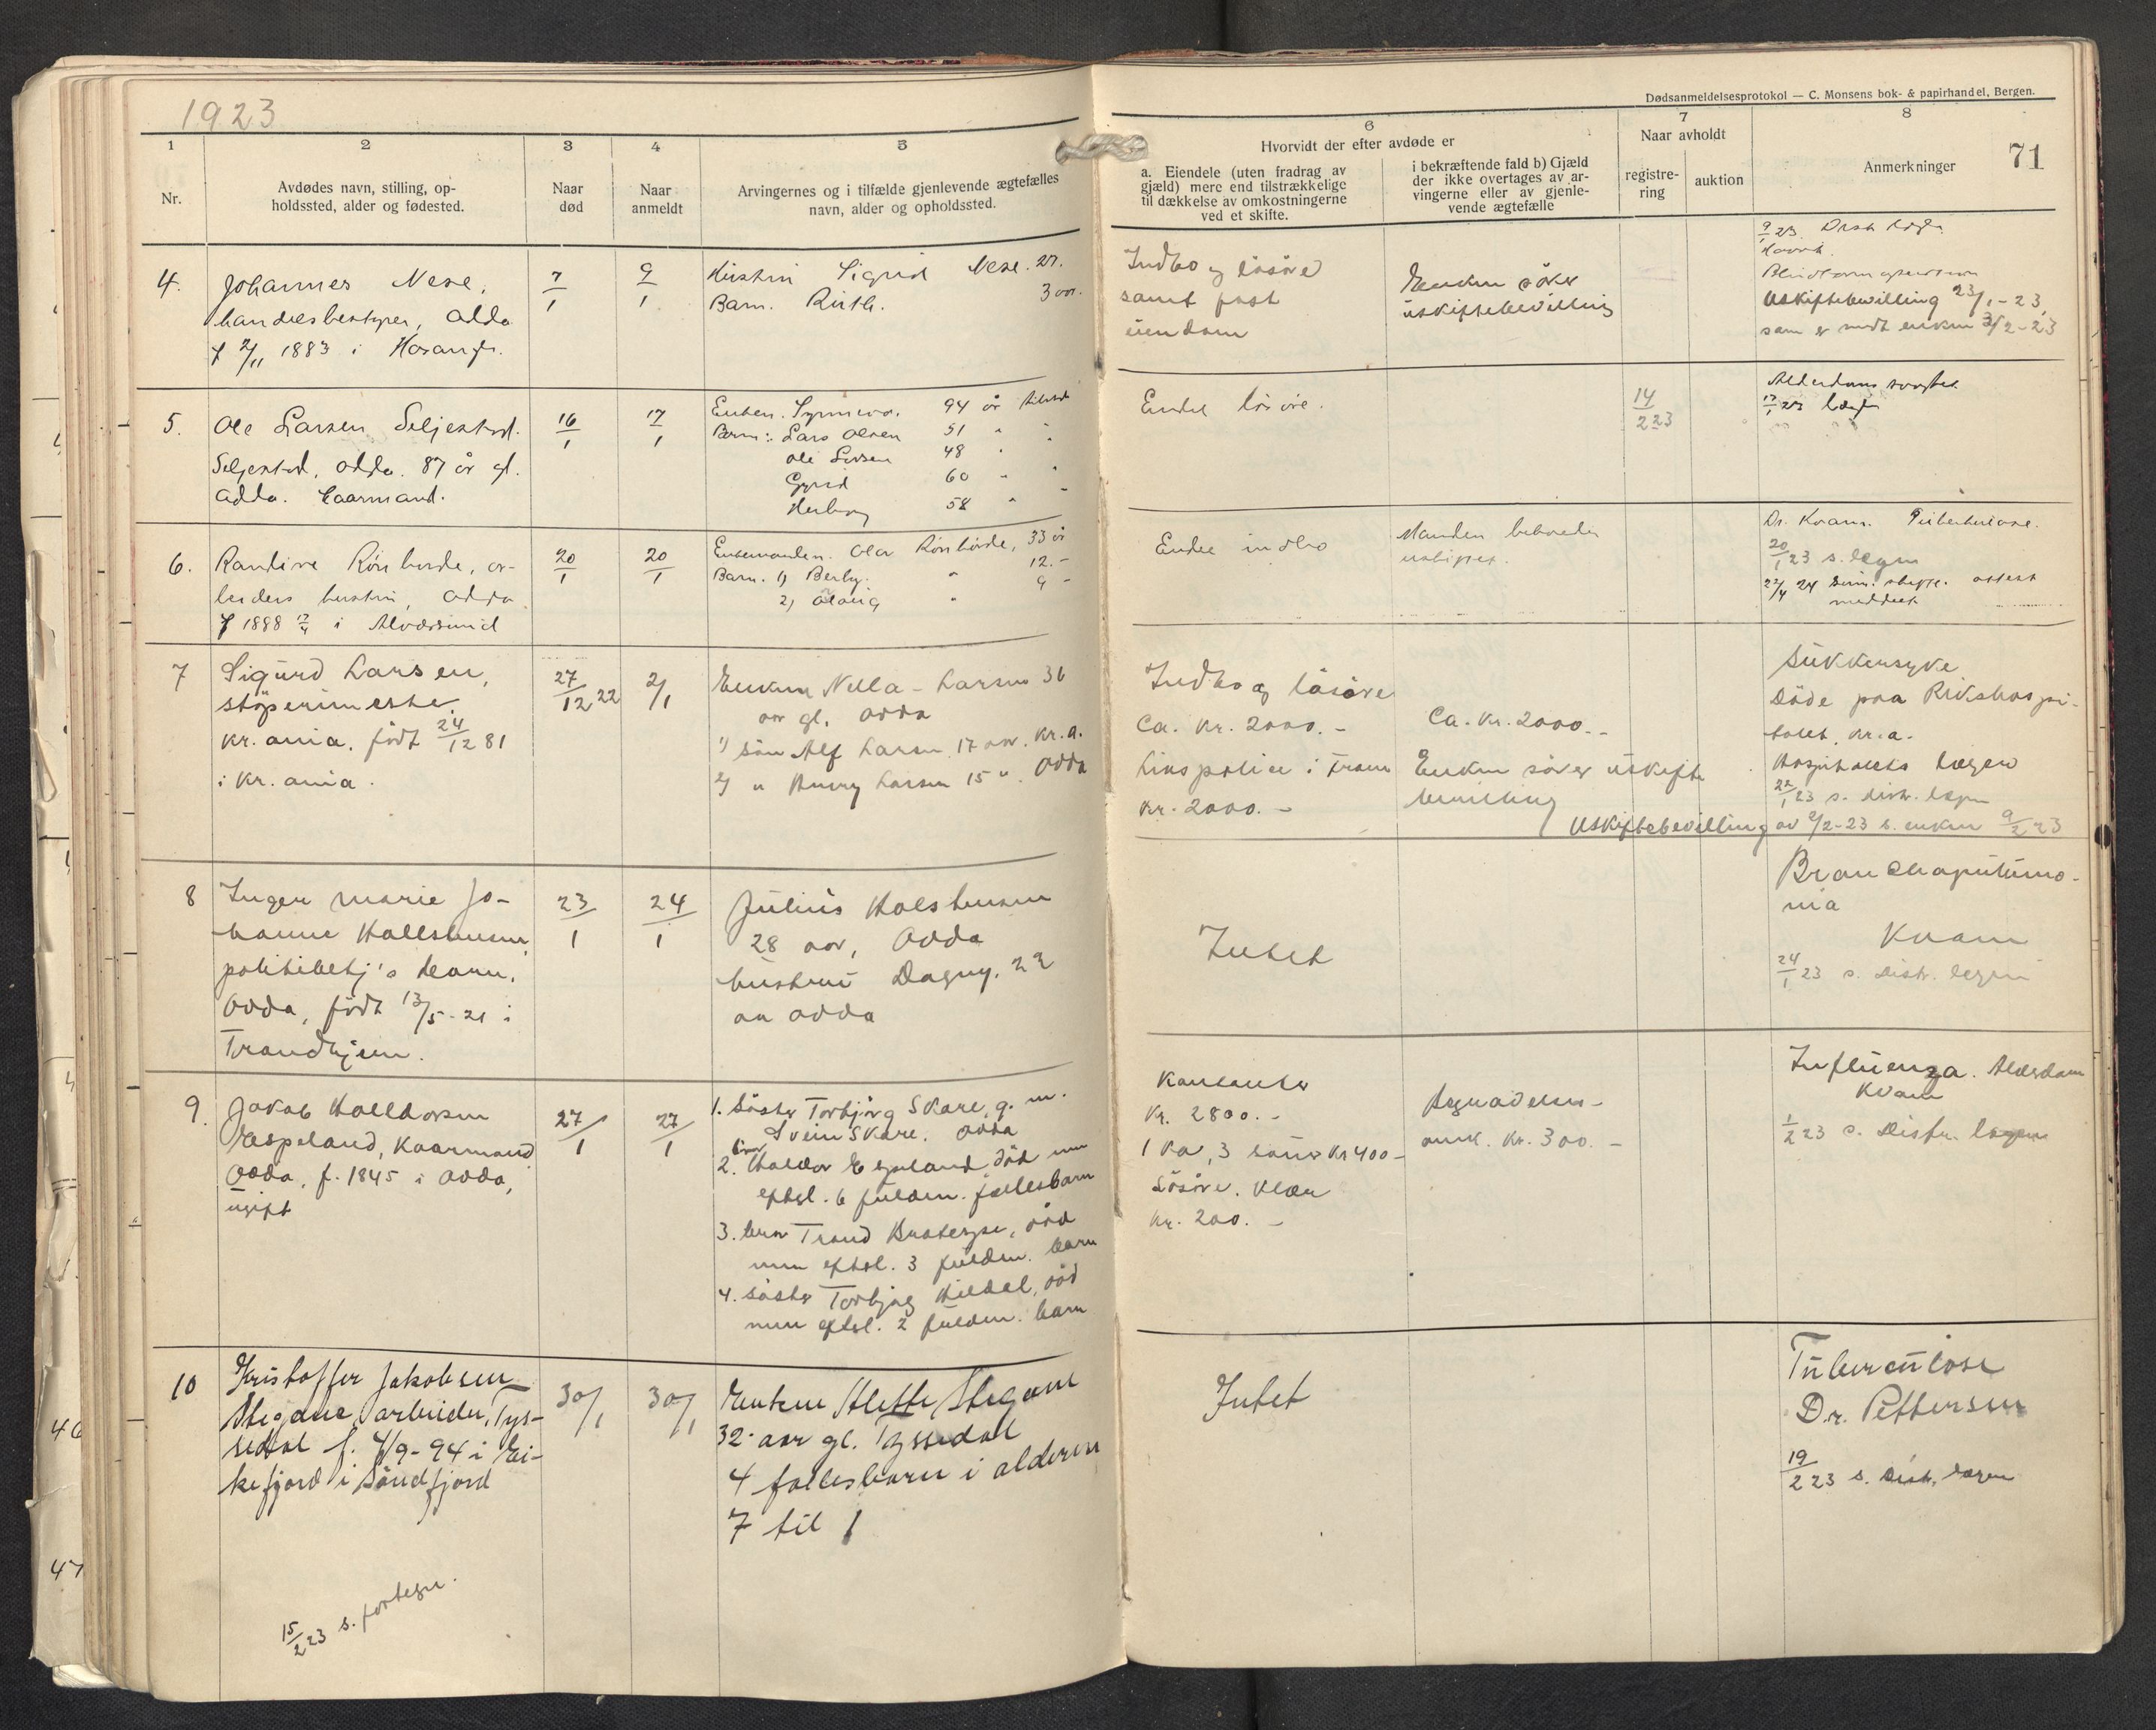 1923
Dødsanmeldelsesprotokol — C. Monsens bok- & papirhandel, Bergen.
71
1
2
3
4
5
6
7
8
Nr.
Avdødes navn, stilling, op-
holdssted, alder og fødested.
Naar
død
Naar
anmeldt
Arvingernes og i tilfælde gjenlevende ægtefælles
navn, alder og opholdssted.
Hvorvidt der efter avdøde er
a. Eiendele (uten fradrag av
gjæld) mere end tilstrækkelige
til dækkelse av omkostningerne
ved et skifte.
i bekræftende fald b) Gjæld
der ikke overtages av ar-
vingerne eller av gjenle-
vende ægtefælle
Naar avholdt
registre-
ring
auktion
Anmerkninger
4.
Johannes Nese,
handelsbestyrer, Odda
f 2/11 1883 i Hosanger.
7/1
9/1
Hustru Sigrid Nese. 27.
Barn. Ruth. 3 aar.
Indbo og lösöre
samt fast
eiendom
Enken söker
uskiftebevilling
9/1 23. Distr. læge
Blindtarmoperation
Uskiftebevilling 23/1-23,
som er sendt enken 3/2-23
5.
Ole Larsen Seljestad.
Seljestad, Odda. 87 år gl.
Odda. Kaarmand.
16/1
17/1
Enken. Synneva. 94 år
Barn: Lars Olsen 51 " "
Ole Larsen 48 "
Gyrid 60 " "
Herborg 58 " "
Endel lösöre.
14/2 23
Alderdoms svaghet
17/1 23 læge
6.
Randine Rönhovde, ar-
beiders hustru, Odda
f 1888 17/4 i Alversund
20/1
20/1
Enkemanden. Olai Rönhovde, 33 år
Barn. 1) Berly. " 12.-
2) Olaug " 9 -
Endel indbo
Manden beholder
uskiftet.
Dr. Kvam. Tuberkulose.
20/1 23 s. legen
22/4 24 skifte. attest
meddelt
7
Sigurd Larsen,
stöperimester,
Kr.ania. född 24/12 81
i Kr.ania.
27/12 22
2/1
Enken Nella Larsen 36
aar gl. Odda
1) sön Alf Larsen 17 aar. Kr.a.
2) " Harry Larsen 15 " Odda
Indbo og lösöre
ca. kr. 2000.-
Livspolice i Fram
kr. 2000.-
Ca. kr. 2000.-
Enken söker uskifte
bevilling
Sukkersyke
Döde paa Rikshospi-
talet, Kr.a.
Hospitalets læger
22/1 23 s. distr. legen
Uskiftebevilling av 2/2-23 s. enken 9/2 23
8
Inger Marie Jo-
hanne Hallshusen
politibetj's barn,
Odda, född 13/5-21 i
Trondhjem.
23/1
24/1
Julius Holshusen
28 aar, Odda
hustru Dagny. 22
aar Odda
Intet
Bronchopnöumo-
nia
Kvam
24/1 23 s. Distr. legen
9.
Jakob Halldorsen
Espeland, Kaarmand
Odda, f. 1845 i Odda,
ugift
27/1
27/1
1. Söster Torbjörg Skare, g. m.
Svein Skare. Odda
2. bror Haldor Espeland, död men
efterl. 6 fuldm. fællesbarn
3. bror Trond Bratespe, död
men efterl. 3 fuldm. barn
4. söster Torbjörg Hildal, död
men efterl. 2 fuldm. barn
Kontanter
kr. 2800.-
1 ko, 3 sauer kr 400-
Lösöre. Klær
kr. 200.-
Begravelses-
omk. kr. 300.-
Influenza. Alderdom
Kvam
1/2 23 s. Distr. legen
10
Kristoffer Jakobsen
Stegane, arbeider, Tys-
sedal f. 4/9-94 i Ei-
kefjord i Söndfjord
30/1
30/1
Enken Alette Stegane
32 aar gl. Tyssedal
4 fællesbarn i alderen
7 til 1
Intet
Tuberculose
Dr. Pettersen
19/2 23 s. Distr. legen
15/2 23 s. fortegn.